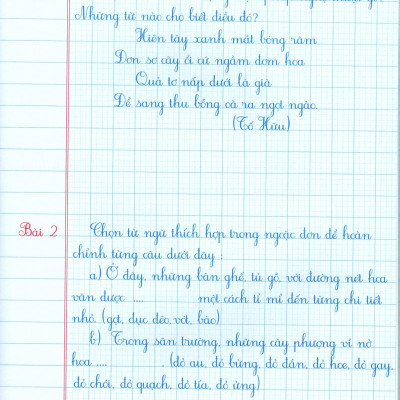 Những từ nào cho biết điều đó?
Hiên tây xanh mát bóng râm
Đơn sơ cây ổi cứ ngầm đơm hoa
Quả tơ nấp dưới lá già
Để sang thu bỗng oà ra ngọt ngào.
(Tố Hữu)
Bài 2 Chọn từ ngữ thích hợp trong ngoặc đơn để hoàn
chỉnh từng câu dưới đây :
a) Ở đây, những bàn ghế, tủ gỗ, với đường nét hoa
văn được .... một cách tỉ mỉ đến từng chi tiết
nhỏ. (gọt, đục đẽo, vót, bào)
b) Trong sân trường, những cây phượng vĩ nở
hoa .... . (đỏ au, đỏ bừng, đỏ đắn, đỏ hoe, đỏ gay,
đỏ chói, đỏ quạch, đỏ tía, đỏ ửng)